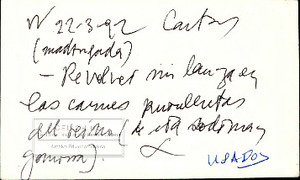 N 22-3-92 Cartas
(madrugada)
- Revolver mi lanza en
las carnes purulentas
del reino (de esta sodoma y
gomorra).
USADOS